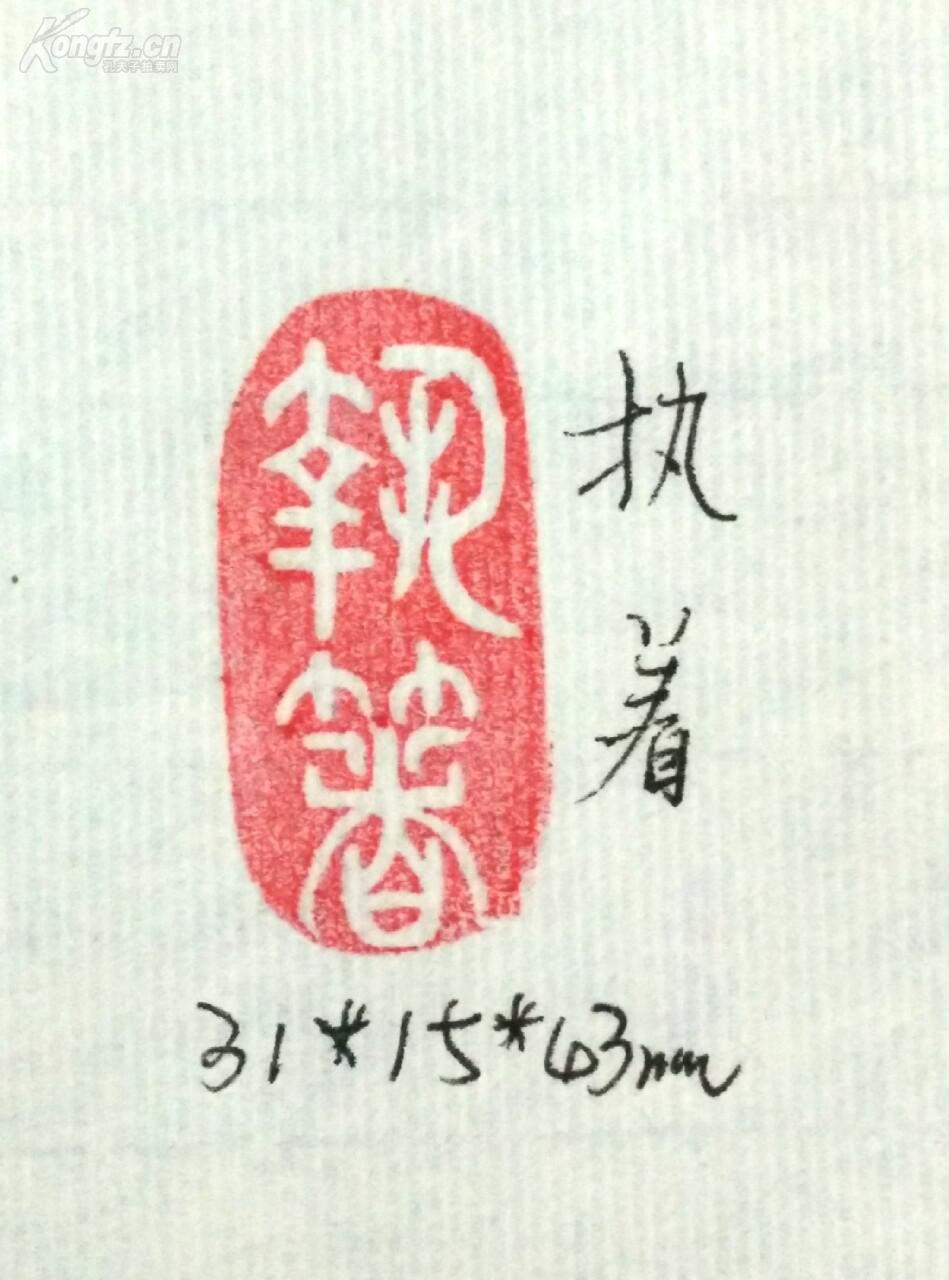 Kongfz.cn
孔夫子拍卖网
執箸
执
着
31*15*43mm